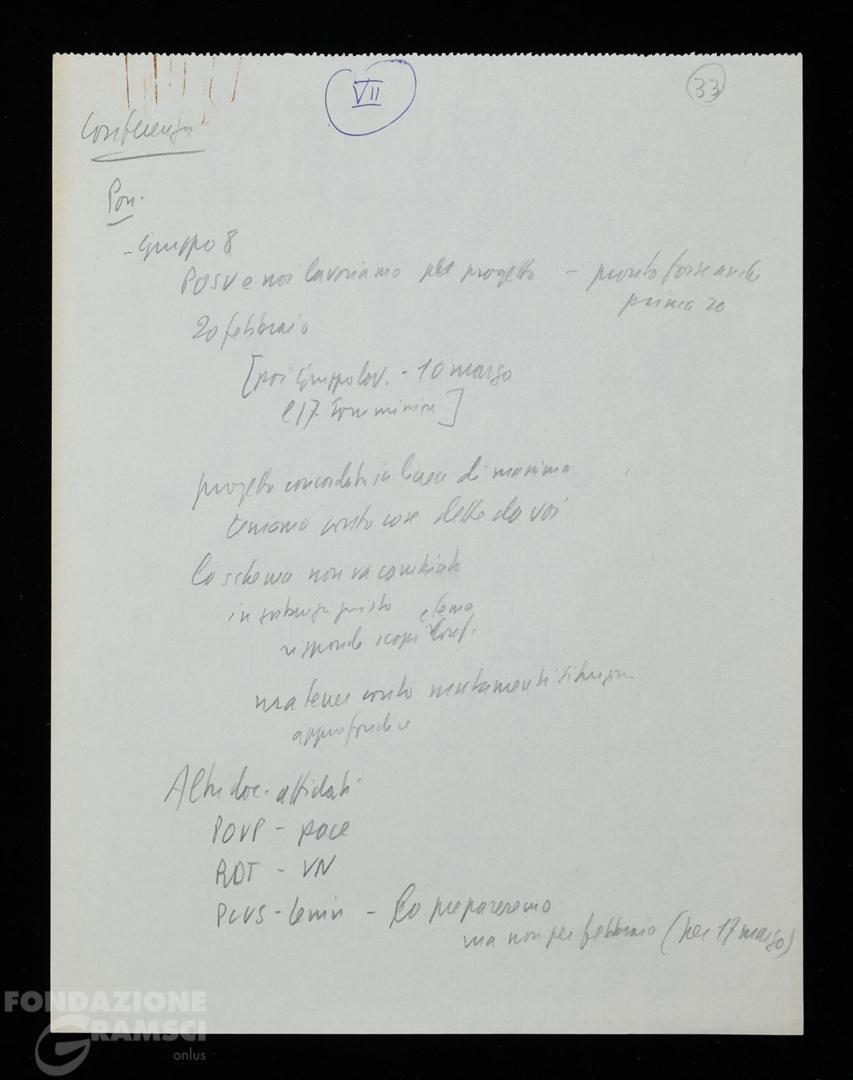 VII
33
Conferenza
Pon.
- Gruppo 8
POSU e noi lavoriamo per progetto - pronto forse anche
prima 20
20 febbraio
[poi Gruppo lav. - 10 marzo
e 17 Comminine]
progetto concordato in linea di massima
teniamo conto cose dette da voi
lo schema non va cambiato
in sostanza giusto e tema
risponde scopi Conf.
ma tener conto mutamenti situazione
approfondire
Altri doc. affidati
POUP - pace
RDT - VN
PCUS - Lenin - lo prepareremo
ma non per febbraio (per 17 marzo)
FONDAZIONE
GRAMSCI
onlus